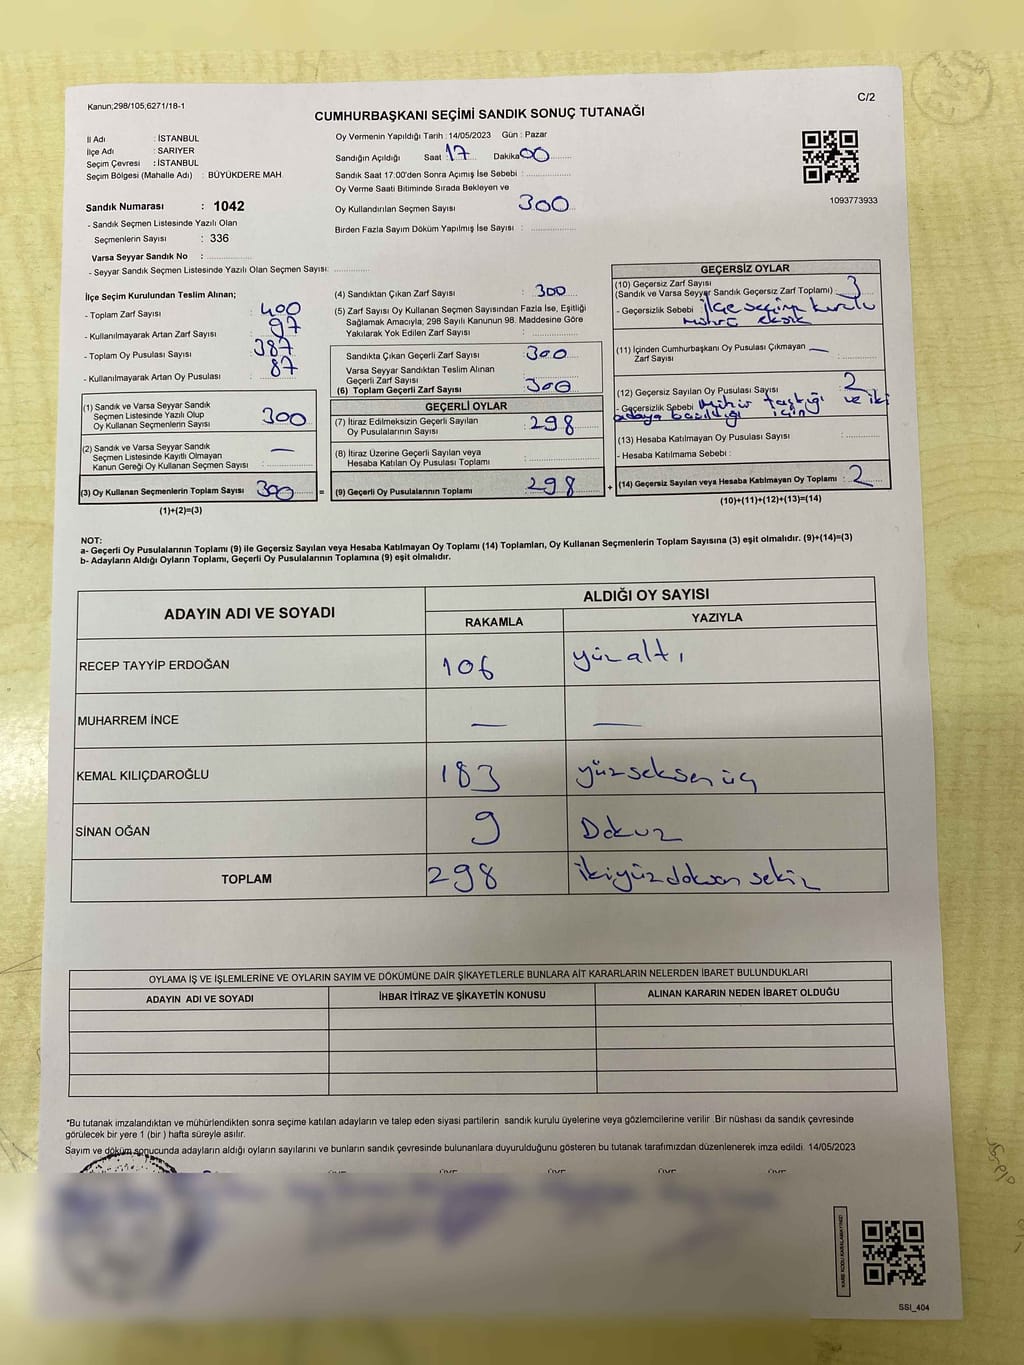 Kanun;298/105,6271/18-1
C/2
CUMHURBAŞKANI SEÇİMİ SANDIK SONUÇ TUTANAĞI
İl Adı : İSTANBUL
İlçe Adı : SARIYER
Seçim Çevresi : İSTANBUL
Seçim Bölgesi (Mahalle Adı) : BÜYÜKDERE MAH.
Sandık Numarası : 1042
- Sandık Seçmen Listesinde Yazılı Olan
Seçmenlerin Sayısı : 336
Varsa Seyyar Sandık No :
- Seyyar Sandık Seçmen Listesinde Yazılı Olan Seçmen Sayısı:
Oy Vermenin Yapıldığı Tarih : 14/05/2023 Gün : Pazar
Sandığın Açıldığı Saat : 17 Dakika 00
Sandık Saat 17:00'den Sonra Açımış İse Sebebi :
Oy Verme Saati Bitiminde Sırada Bekleyen ve
Oy Kullandırılan Seçmen Sayısı 300
Birden Fazla Sayım Döküm Yapılmış İse Sayısı :
1093773933
İlçe Seçim Kurulundan Teslim Alınan;
- Toplam Zarf Sayısı : 400
- Kullanılmayarak Artan Zarf Sayısı : 97
- Toplam Oy Pusulası Sayısı : 387
- Kullanılmayarak Artan Oy Pusulası : 87
(1) Sandık ve Varsa Seyyar Sandık
Seçmen Listesinde Yazılı Olup
Oy Kullanan Seçmenlerin Sayısı : 300
(2) Sandık ve Varsa Seyyar Sandık
Seçmen Listesinde Kayıtlı Olmayan
Kanun Gereği Oy Kullanan Seçmen Sayısı : —
(3) Oy Kullanan Seçmenlerin Toplam Sayısı : 300
(1)+(2)=(3)
(4) Sandıktan Çıkan Zarf Sayısı : 300
(5) Zarf Sayısı Oy Kullanan Seçmen Sayısından Fazla İse, Eşitliği
Sağlamak Amacıyla, 298 Sayılı Kanunun 98. Maddesine Göre
Yakılarak Yok Edilen Zarf Sayısı :
Sandıkta Çıkan Geçerli Zarf Sayısı : 300
Varsa Seyyar Sandıktan Teslim Alınan
Geçerli Zarf Sayısı :
(6) Toplam Geçerli Zarf Sayısı : 300
GEÇERLİ OYLAR
(7) İtiraz Edilmeksizin Geçerli Sayılan
Oy Pusulalarının Sayısı : 298
(8) İtiraz Üzerine Geçerli Sayılan veya
Hesaba Katılan Oy Pusulası Toplamı :
= (9) Geçerli Oy Pusulalarının Toplamı : 298
GEÇERSİZ OYLAR
(10) Geçersiz Zarf Sayısı
(Sandık ve Varsa Seyyar Sandık Geçersiz Zarf Toplamı) : 3
- Geçersizlik Sebebi ilçe seçim kurulu
mührü eksik
(11) İçinden Cumhurbaşkanı Oy Pusulası Çıkmayan —
Zarf Sayısı :
(12) Geçersiz Sayılan Oy Pusulası Sayısı : 2
- Geçersizlik Sebebi Mühür taştığı ve iki
adaya basıldığı için
(13) Hesaba Katılmayan Oy Pusulası Sayısı :
- Hesaba Katılmama Sebebi :
+ (14) Geçersiz Sayılan veya Hesaba Katılmayan Oy Toplamı : 2
(10)+(11)+(12)+(13)=(14)
NOT:
a- Geçerli Oy Pusulalarının Toplamı (9) ile Geçersiz Sayılan veya Hesaba Katılmayan Oy Toplamı (14) Toplamları, Oy Kullanan Seçmenlerin Toplam Sayısına (3) eşit olmalıdır. (9)+(14)=(3)
b- Adayların Aldığı Oyların Toplamı, Geçerli Oy Pusulalarının Toplamına (9) eşit olmalıdır.
ADAYIN ADI VE SOYADI
ALDIĞI OY SAYISI
RAKAMLA YAZIYLA
RECEP TAYYİP ERDOĞAN 106 yüz altı
MUHARREM İNCE — —
KEMAL KILIÇDAROĞLU 183 yüzseksen üç
SİNAN OĞAN 9 Dokuz
TOPLAM 298 ikiyüzdoksan sekiz
OYLAMA İŞ VE İŞLEMLERİNE VE OYLARIN SAYIM VE DÖKÜMÜNE DAİR ŞİKAYETLERLE BUNLARA AİT KARARLARIN NELERDEN İBARET BULUNDUKLARI
ADAYIN ADI VE SOYADI İHBAR İTİRAZ VE ŞİKAYETİN KONUSU ALINAN KARARIN NEDEN İBARET OLDUĞU
*Bu tutanak imzalandıktan ve mühürlendikten sonra seçime katılan adayların ve talep eden siyasi partilerin sandık kurulu üyelerine veya gözlemcilerine verilir. Bir nüshası da sandık çevresinde
görülecek bir yere 1 (bir ) hafta süreyle asılır.
Sayım ve döküm sonucunda adayların aldığı oyların sayılarını ve bunların sandık çevresinde bulunanlara duyurulduğunu gösteren bu tutanak tarafımızdan düzenlenerek imza edildi. 14/05/2023
SSI_404